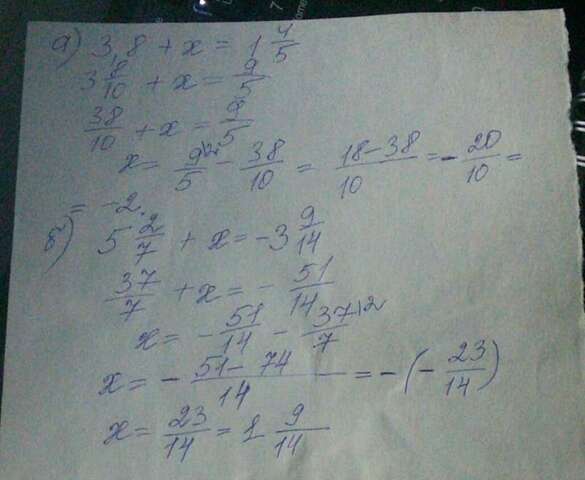 а) 3,8 + x = 1 4/5
3 8/10 + x = 9/5
38/10 + x = 9/5
x = 9/5 \2 - 38/10 = 18-38/10 = - 20/10 =
= -2.
б) 5 2/7 + x = -3 9/14
37/7 + x = - 51/14
x = - 51/14 - 37/7 \2
x = - 51-74/14 = -(- 23/14)
x = 23/14 = 1 9/14